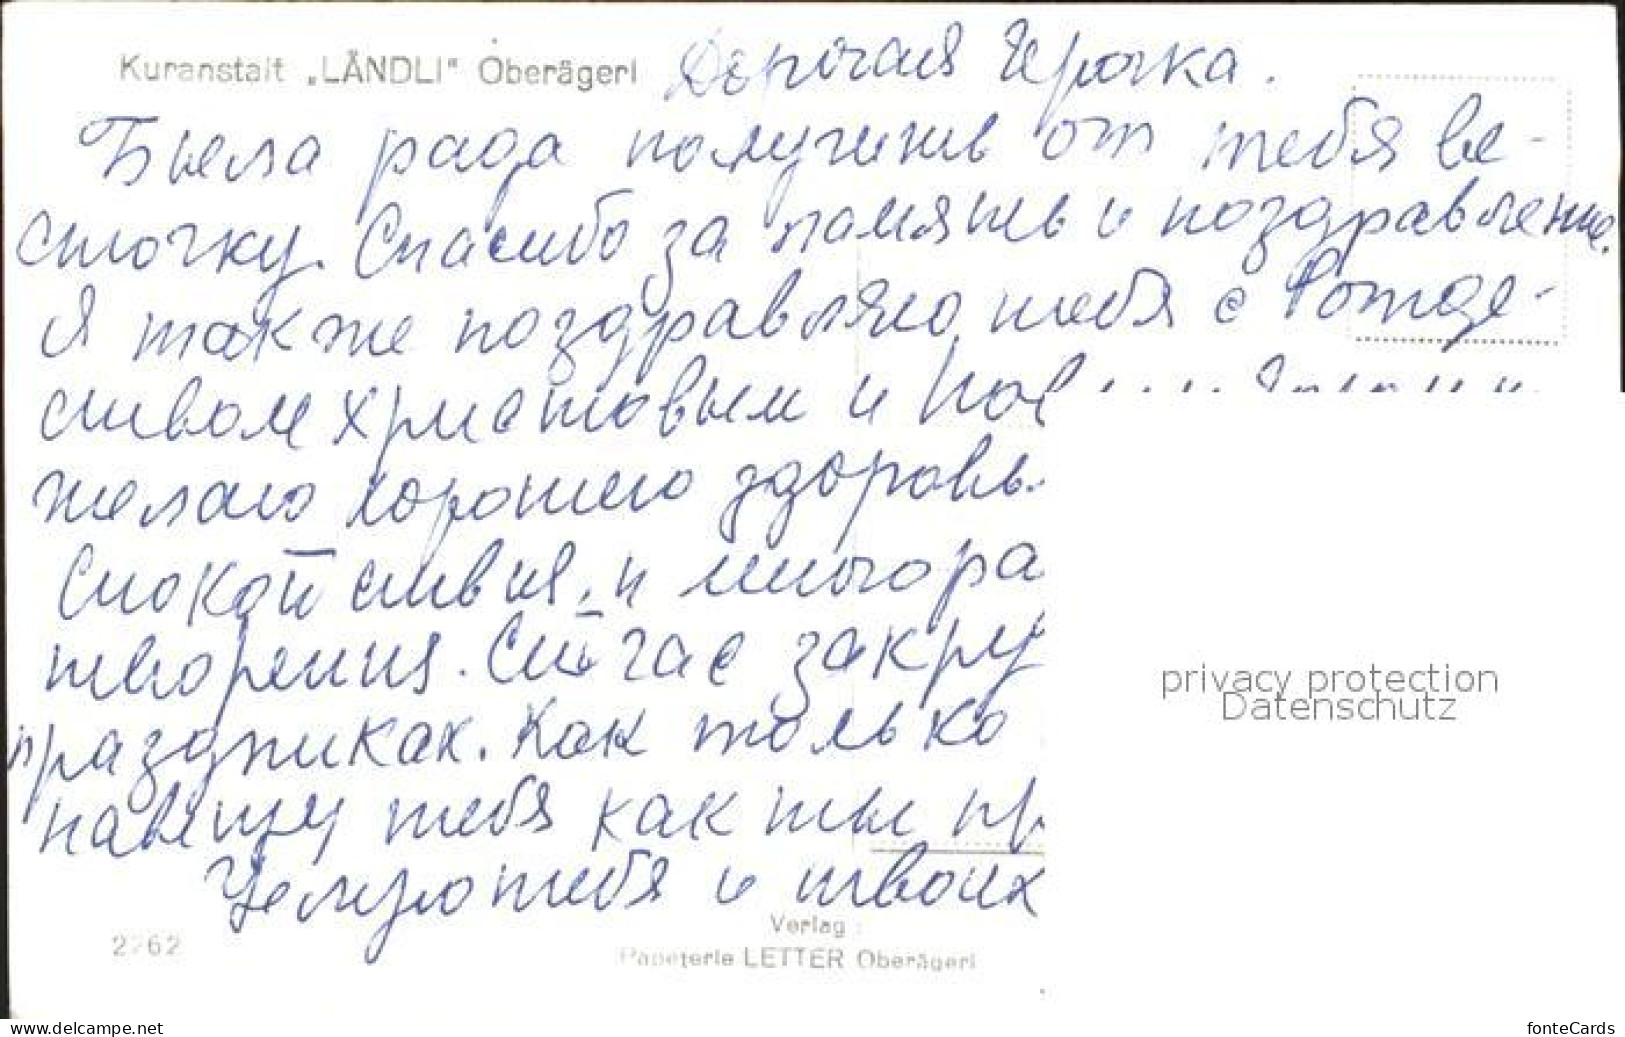 Kuranstalt „LÄNDLI" Oberägeri
Дорогая Ирочка.
Была рада получить от тебя ве-
сточку. Спасибо за память и поздравление.
Я также поздравляю тебя с Рожде-
ством Христовым и Нов
желаю хорошего здоровь
Спокойствия, и много ра
творения. Сейчас закру
праздниках. Как только
навещу тебя как ты пр
Целую тебя и твоих
Verlag :
Papeterie LETTER Oberägeri
2262
privacy protection
Datenschutz
www.delcampe.net
fonteCards